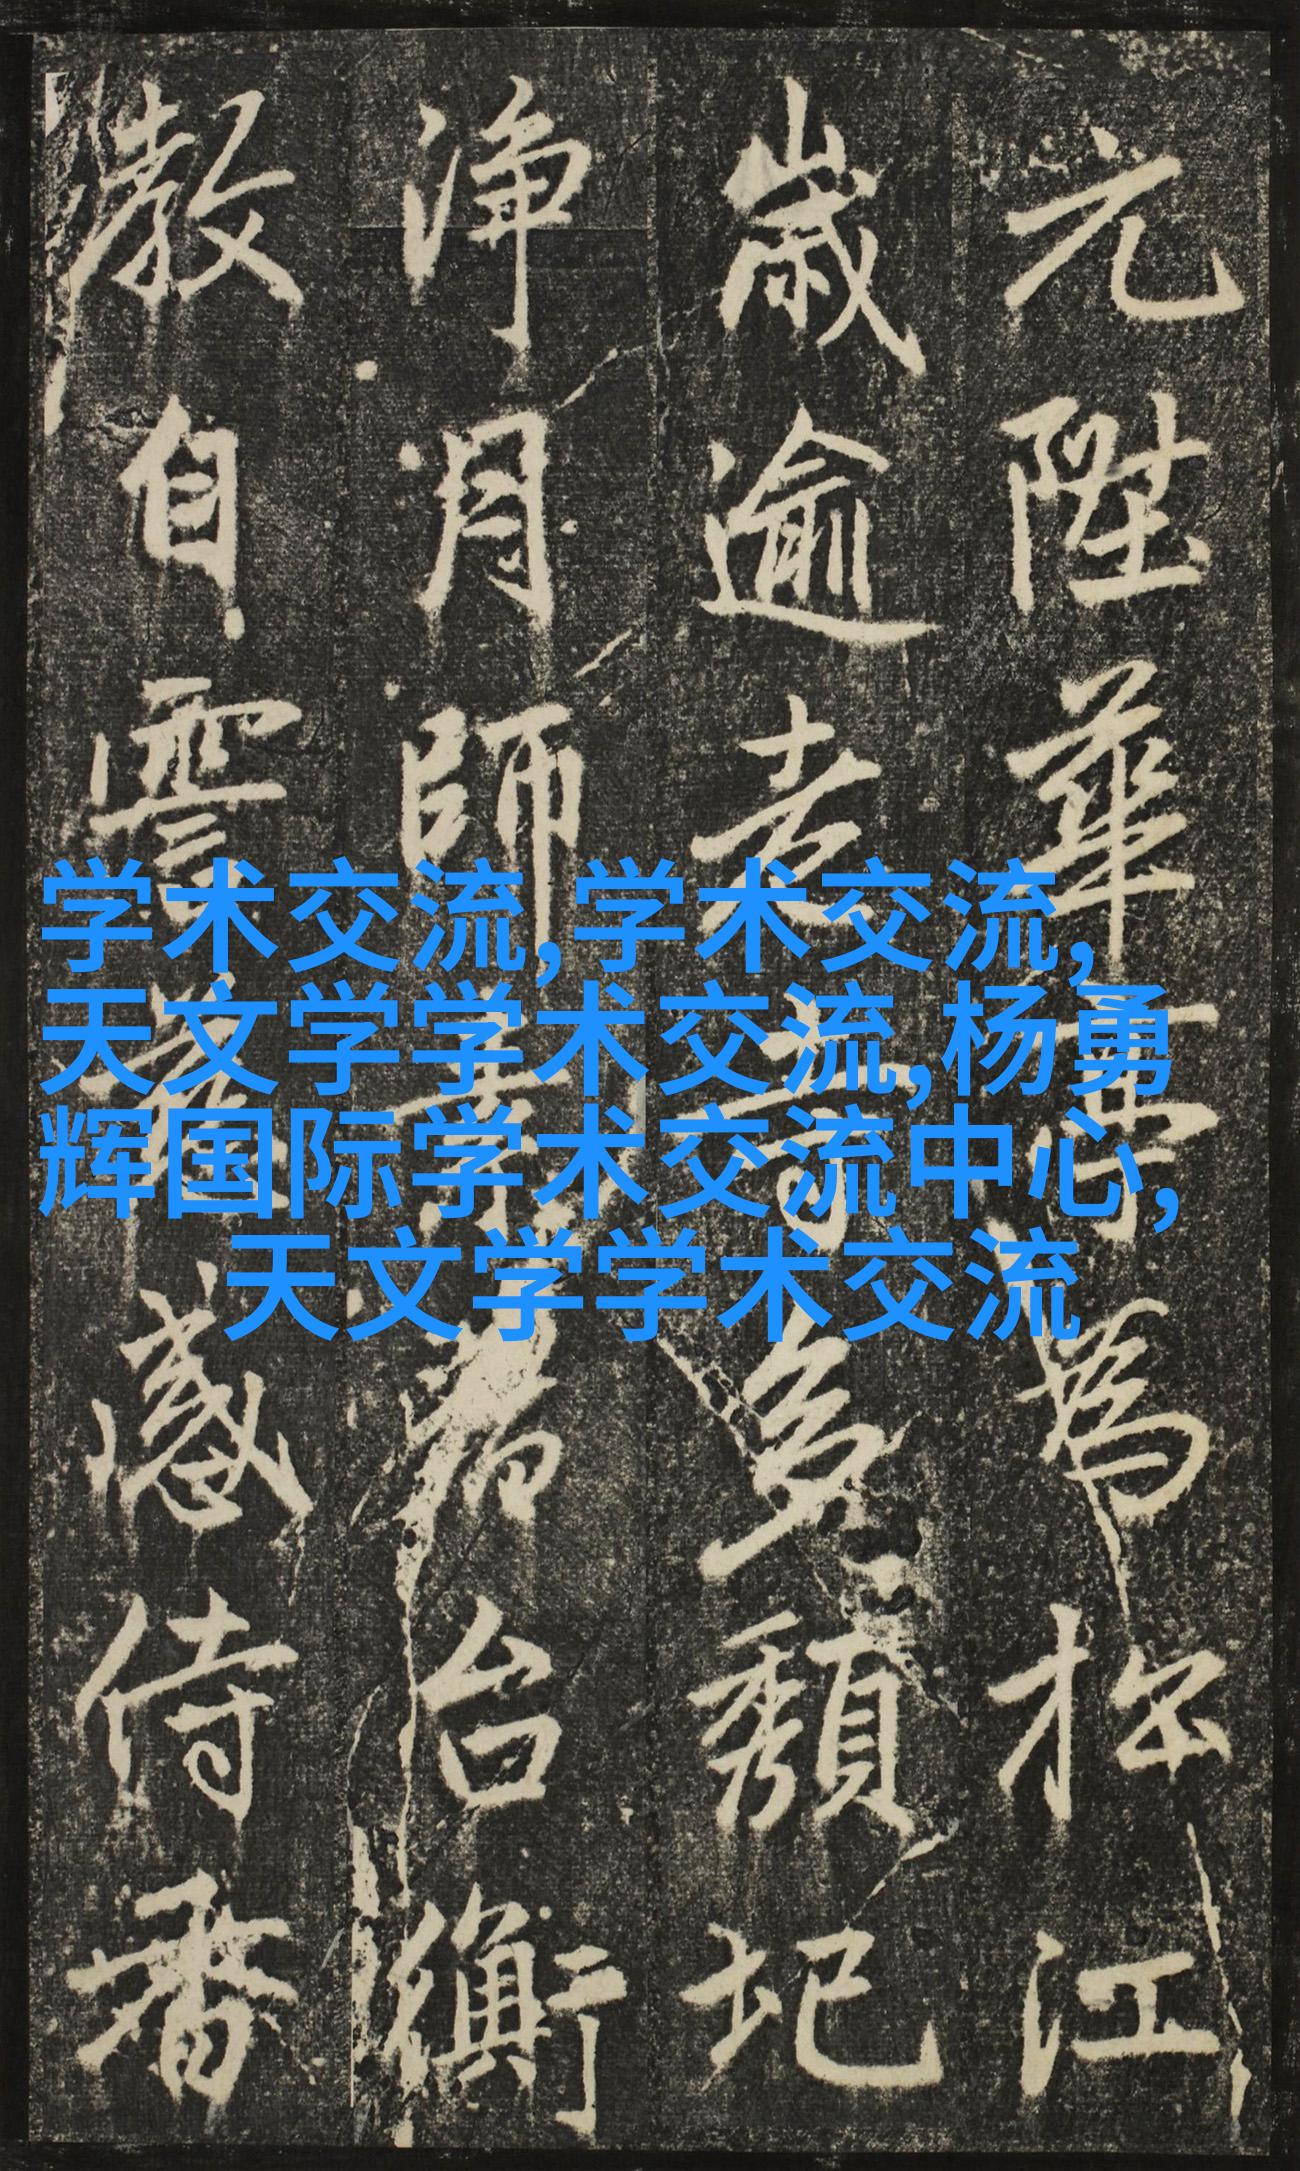 元陞華亭為松江
歲逾老多頹圮
淨月師台衡
教自感侍番
学术交流,学术交流,
天文学学术交流,杨勇
辉国际学术交流中心,
天文学学术交流